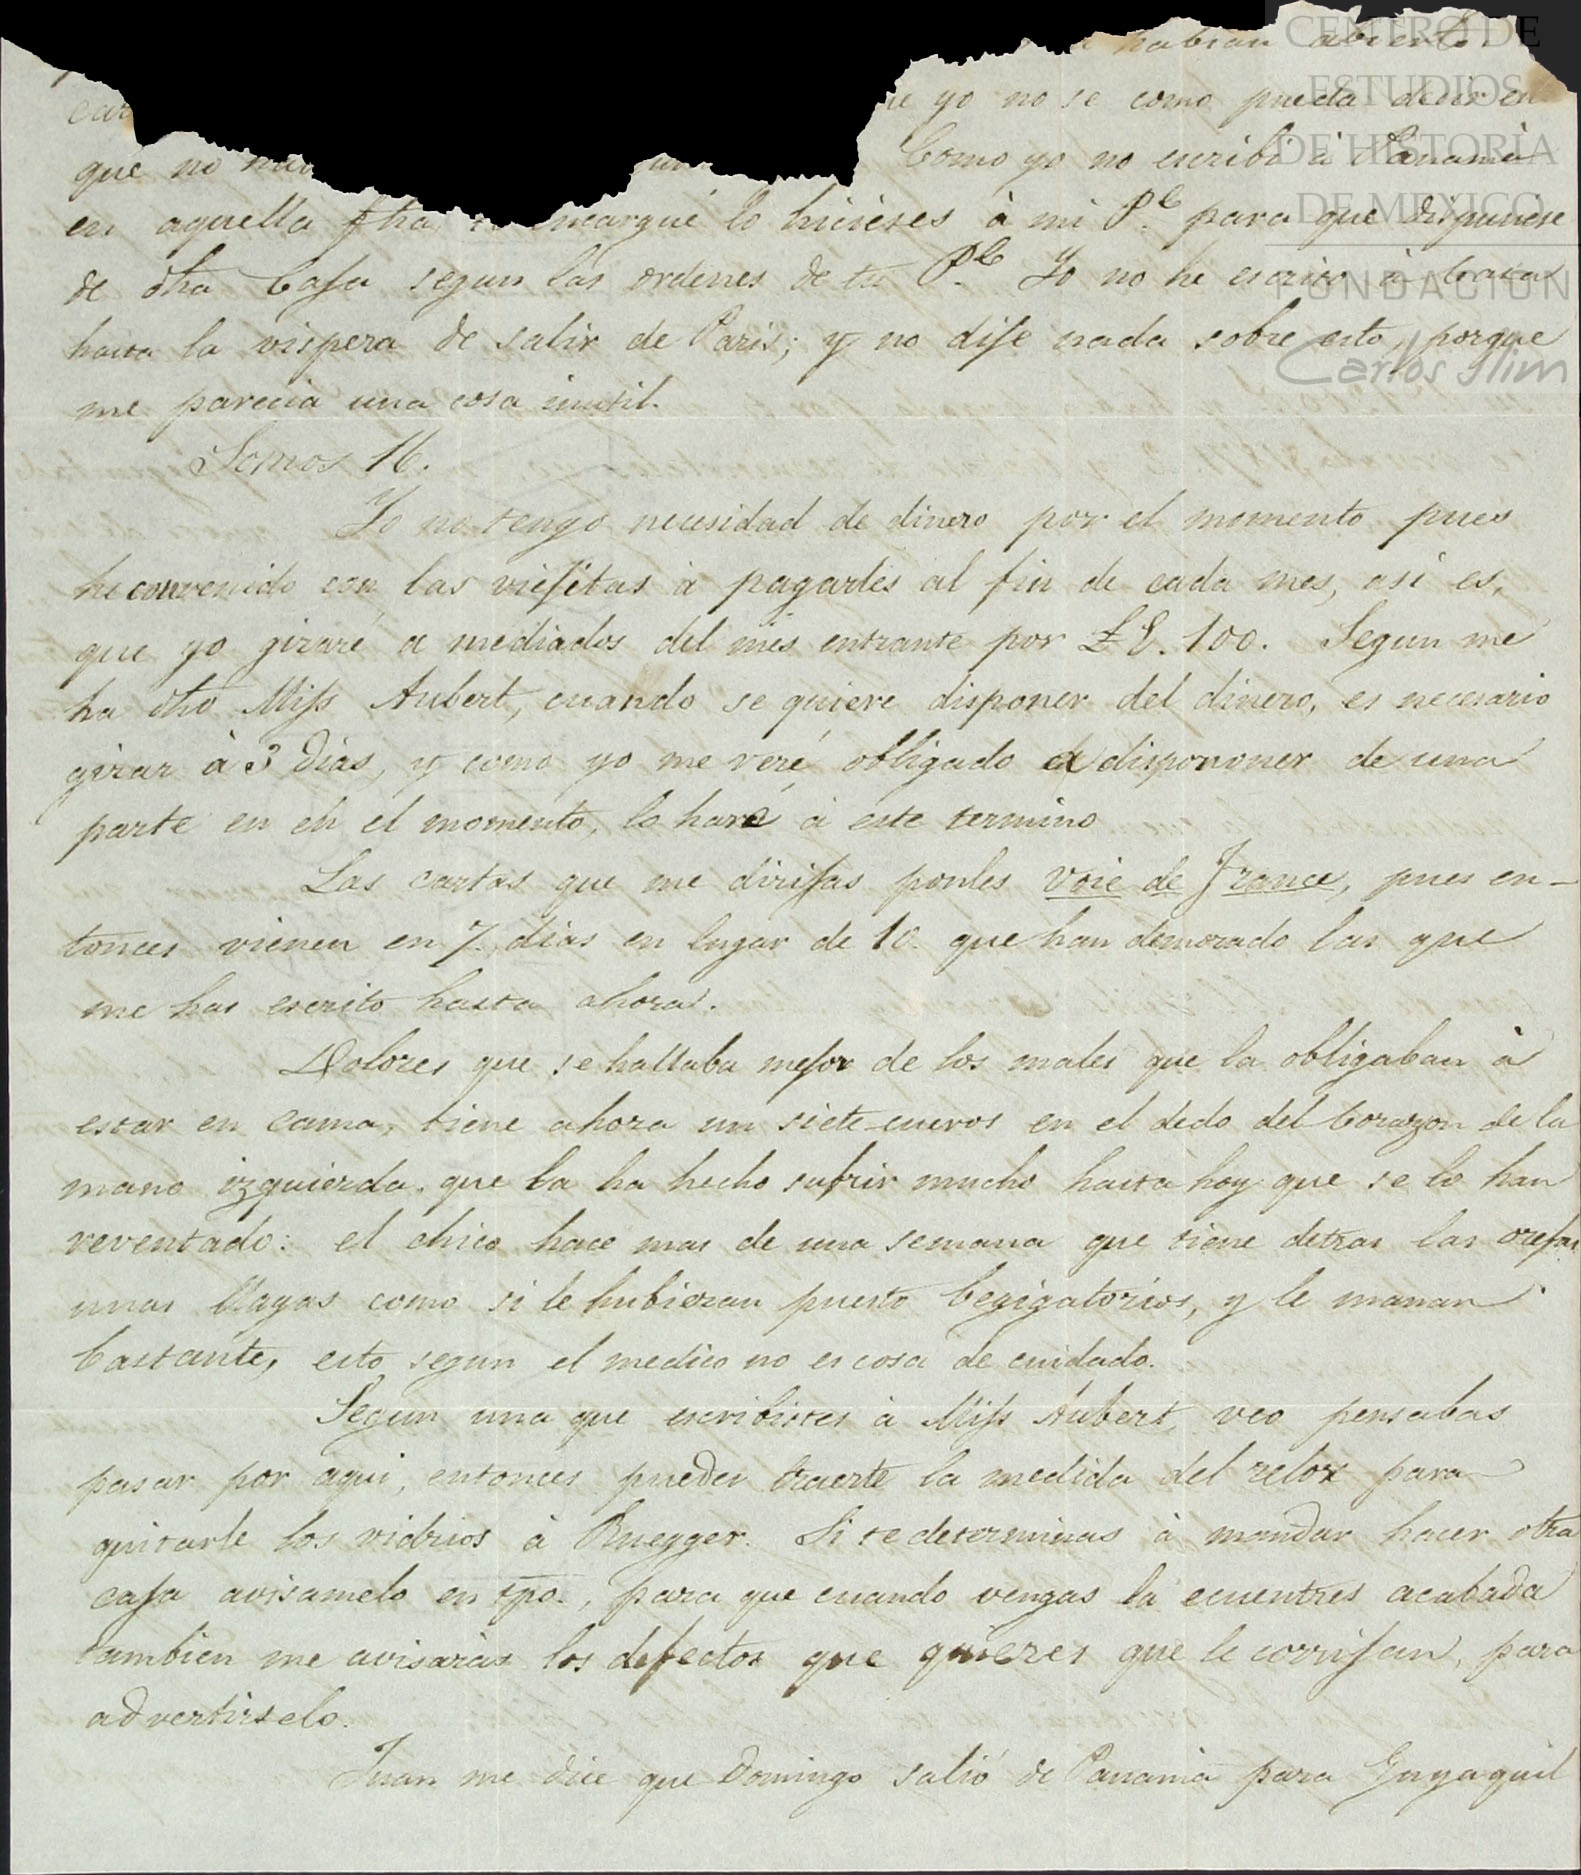 habian abierto
yo no se como pueda decir en
que no Como yo no escribi à Panamà
en aquella fha encargué lo hicieses à mi Pe. para que dispusiese
de dha Casa segun las ordenes de tu Pe. Yo no he escrito à
hasta la vispera de salir de Paris; y no dije nada sobre esto, porque
me parecia una cosa inutil.
Somos 16.
Yo no tengo necesidad de dinero por el momento pues
he convenido con las viejitas à pagarles al fin de cada mes, asi es,
que yo giraré a mediados del mes entrante por £ E. 100. Segun me
ha dho Miss Aubert, cuando se quiere disponer del dinero, es necesario
girar à 3 dias, y como yo me veré obligado a dispononer de una
parte en en el momento, lo haré à este termino
Las cartas que me dirijas ponles voie de France, pues en-
tonces vienen en 7. dias en lugar de 10. que han demorado las que
me has escrito hasta ahora.
Dolores que se hallaba mejor de los males que la obligaban à
estar en cama, tiene ahora un siete-cueros en el dedo del Corazon de la
mano izquierda, que la ha hecho sufrir mucho hasta hoy que se lo han
reventado: el chico hace mas de una semana que tiene detras las orejas
unas llagas como si le hubieran puesto begigatorios, y le manan
bastante, esto segun el medico no es cosa de cuidado.
Segun una que escribistes à Miss Aubert, veo pensabas
pasar por aqui, entonces puedes traerte la medida del relox para
quitarle los vidrios à Ruegger. Si te determinas à mandar hacer otra
caja avisamelo en tpo., para que cuando vengas la ecuentres acabada
tambien me avisaràs los defectos que quieres que le corrijan, para
advertirselo.
Juan me dice que Domingo salió de Panamà para Guyaquil
CENTRO DE
ESTUDIOS
DE HISTORIA
DE MEXICO
FUNDACION
Carlos Slim